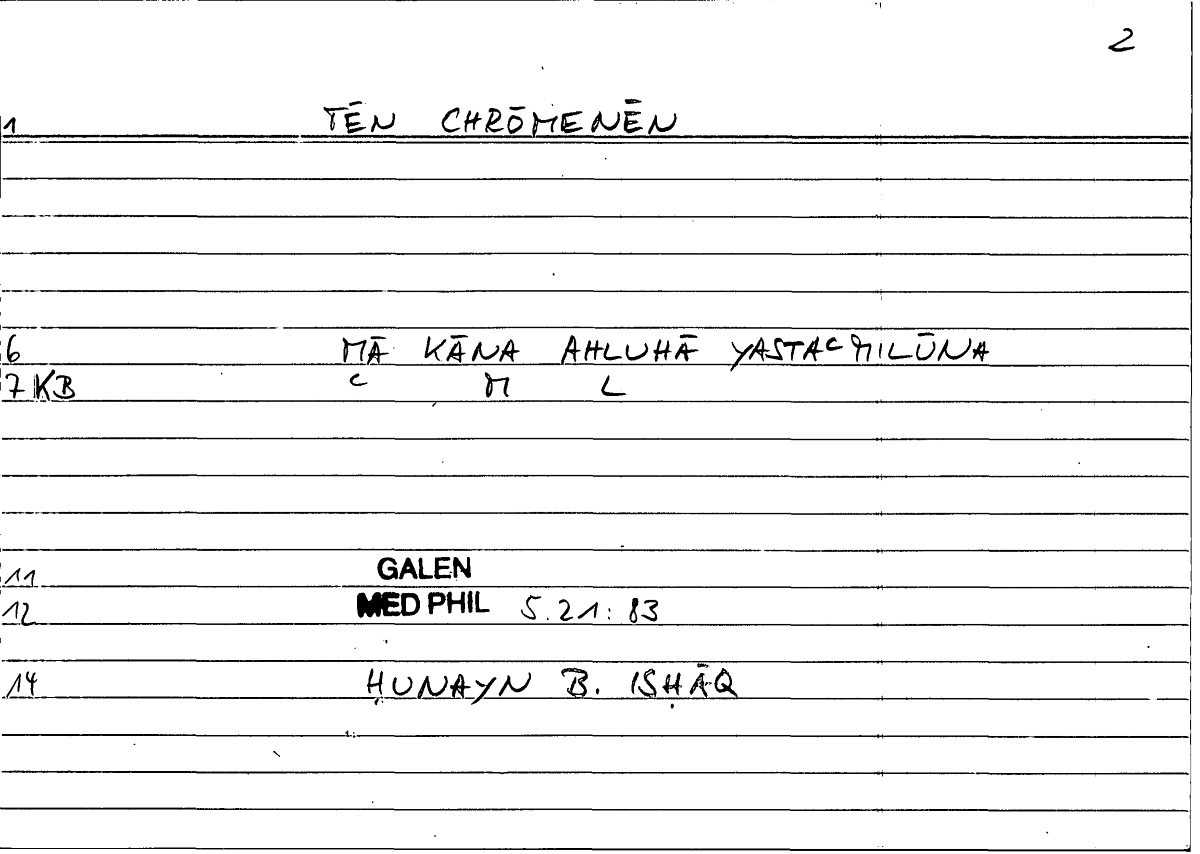 2
1 TĒN CHRŌMENĒN
6 MĀ KĀNA AHLUHĀ YASTAᶜMILŪNA
7 KB ᶜ M L
11 GALEN
12 MED PHIL 5.21:83
14 ḤUNAYN B. ISḤĀQ